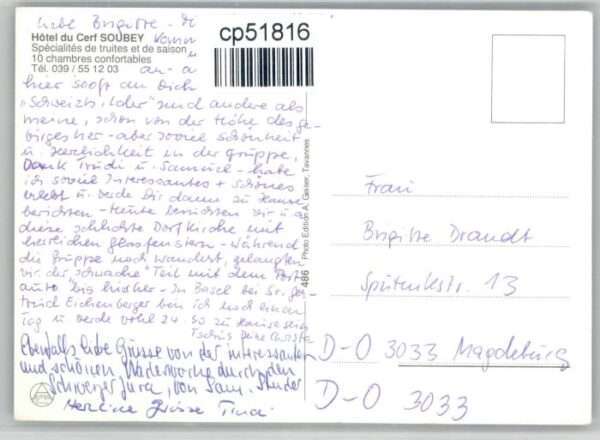 Liebe Brigitte - 
cp51816
Hôtel du Cerf SOUBEY
Spécialités de truites et de saison
10 chambres confortables
Tél. 039 / 55 12 03
an - a
hier sooft an Dich
"Schweizb. Oder" sind andere als
meine, schon von der Höhe des Ge-
birges her - aber soviel Schönheit
u. Herzlichkeit in der Gruppe.
Dank Trudi u. Samuel - habe
ich soviel Interessantes + Schönes
erlebt u. werde Dir dann zu Hause
berichten - Heute besichten wir u. a.
diese schlichte Dorfkirche mit
herrlichen Glasfenstern - Während
die Gruppe noch wandert, gelangten
wir der "schwache" Teil mit dem Post-
auto bis hierher - In Basel bei Sr. Ger-
trud Eichenberger bin ich noch einen
Tag u. werde wohl 24. 
zu Hause sein
Tschüß Deine Christa
Ebenfalls liebe Grüsse von der interessanten
und schönen Wanderwoche durch den
Schweizer Jura, von Sam. Studer
Herzliche Grüsse Trudi
486 Photo Edition A. Geiser, Tavannes
Frau
Brigitte Brandt
Sputnikstr. 13
D-O 3033 Magdeburg
D-O 3033